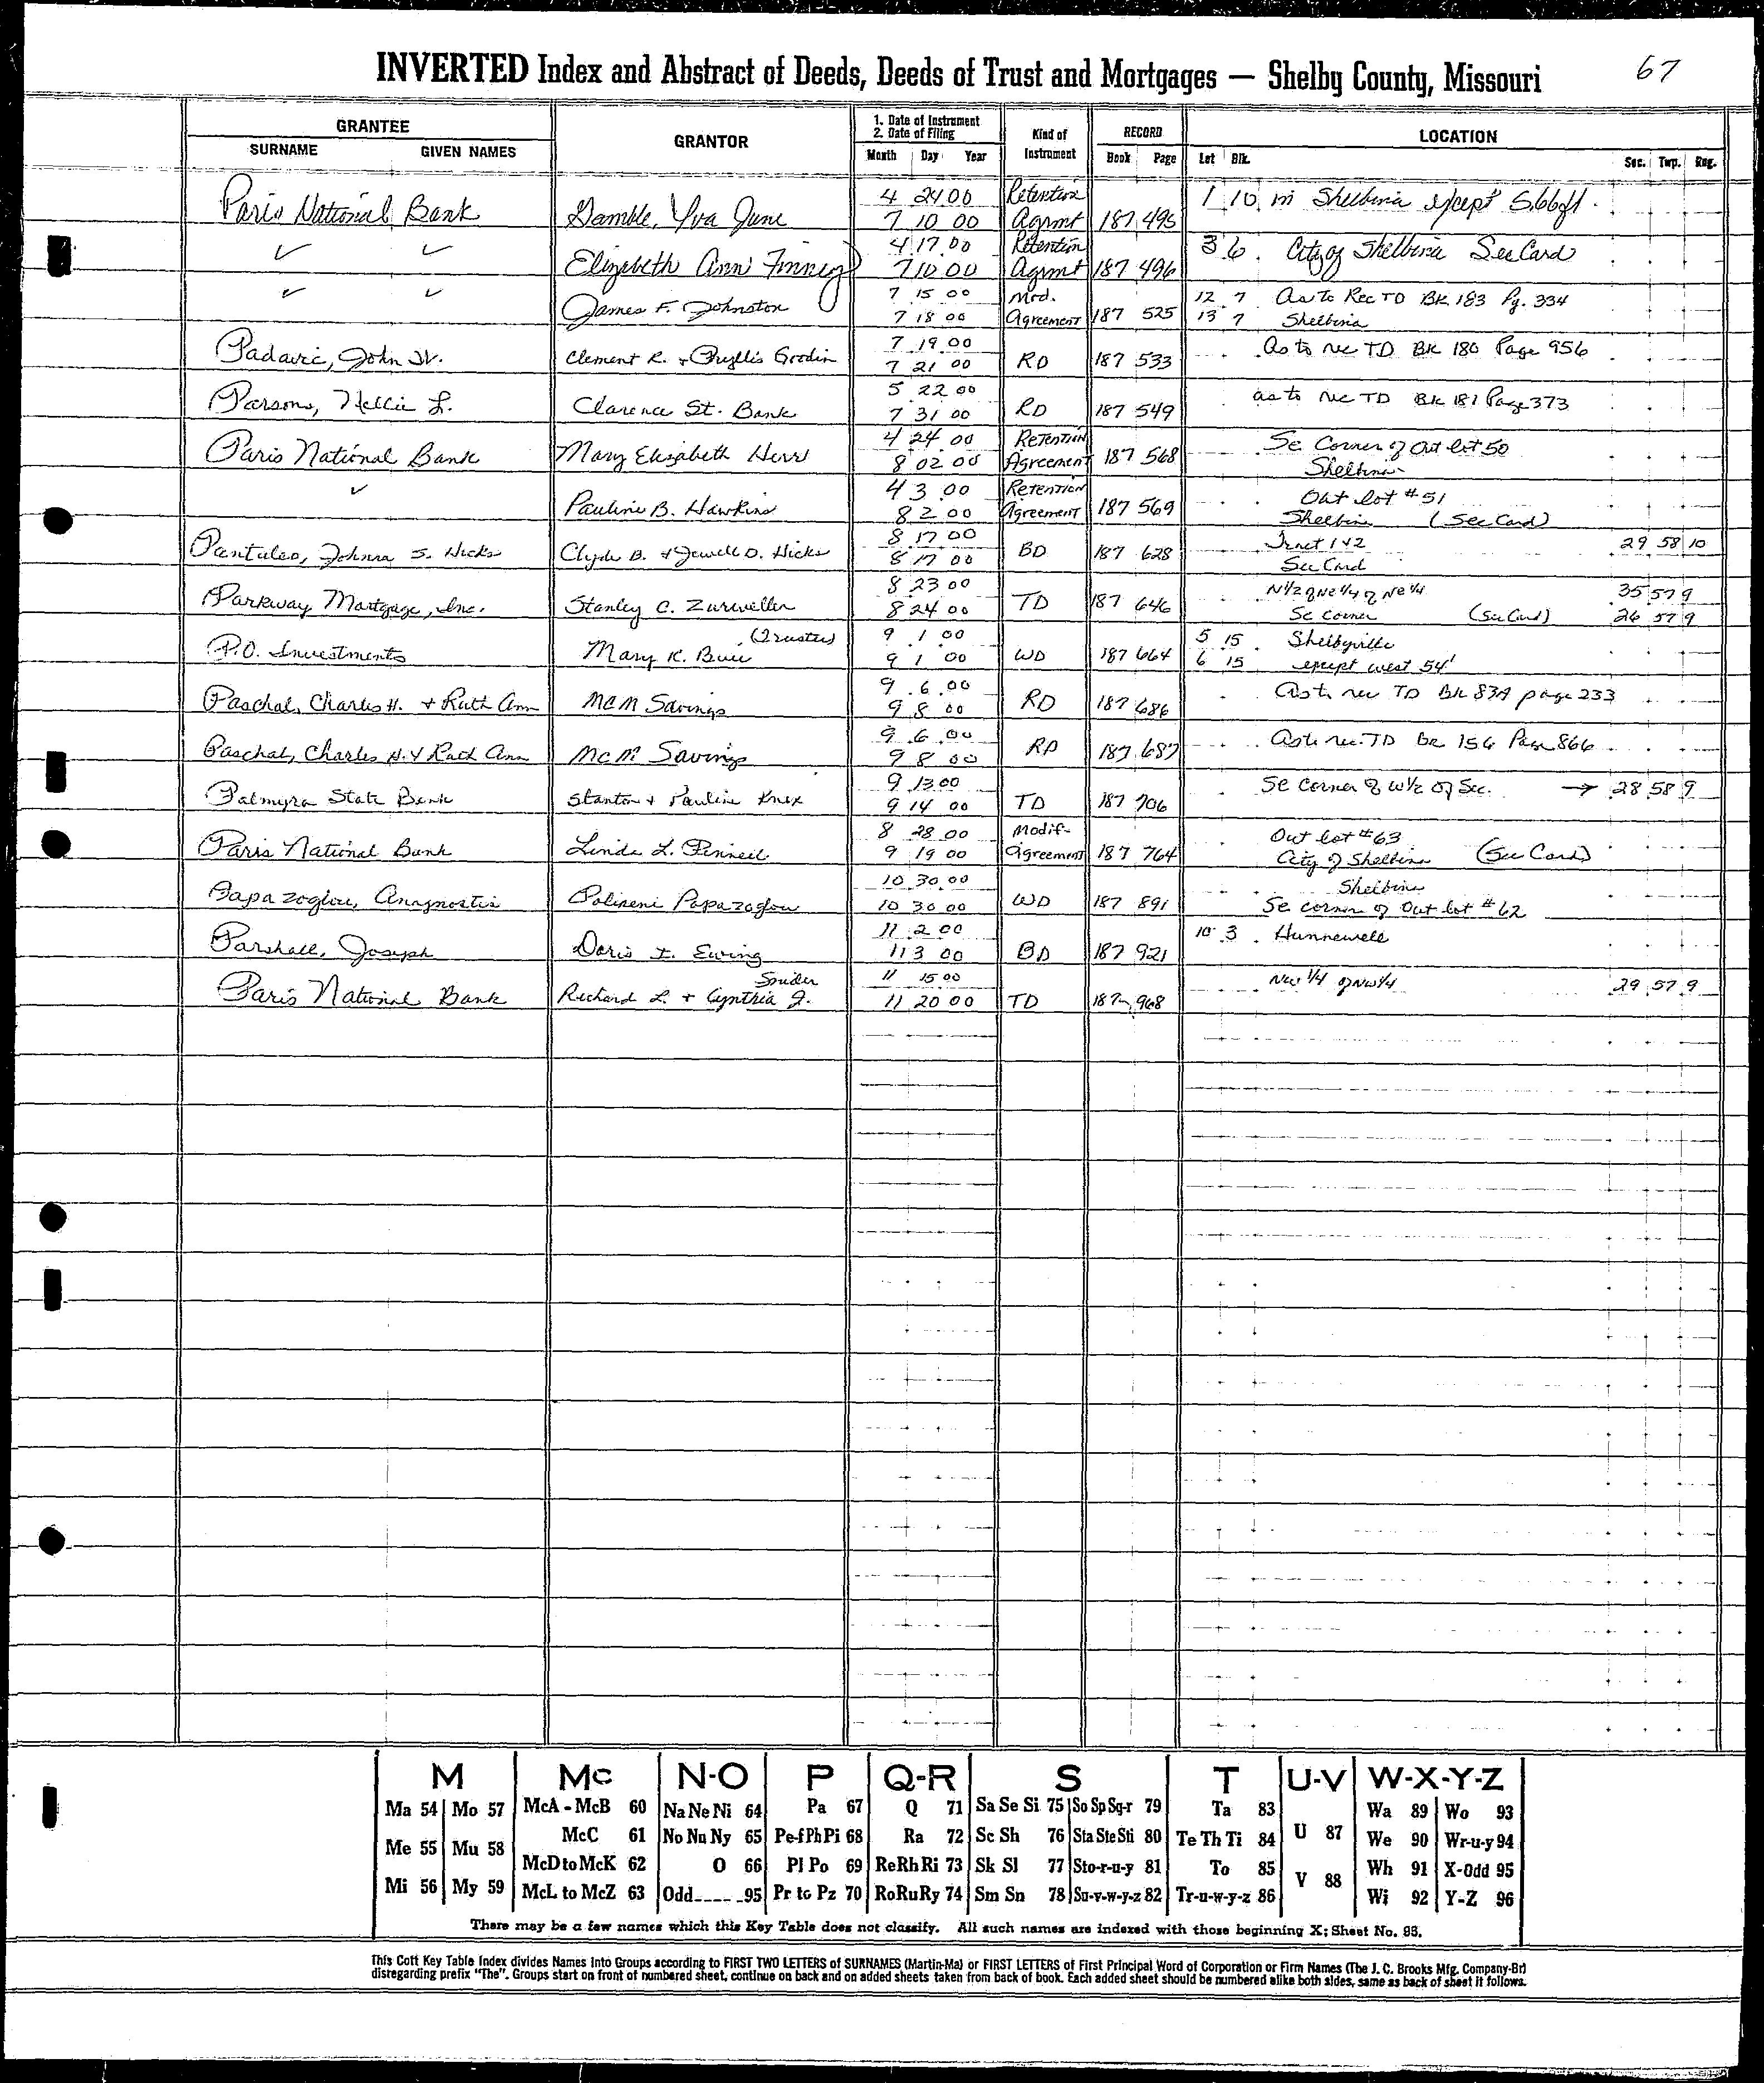 INVERTED Index and Abstract of Deeds, Deeds of Trust and Mortgages — Shelby County, Missouri 67
GRANTEE GRANTOR 1. Date of Instrument 2. Date of Filing Kind of Instrument RECORD LOCATION
SURNAME GIVEN NAMES Month Day Year Book Page Lot Blk. Sec. Twp. Rng.
4 24 00 Retention 1 10 in Shelbina except 5.66 ft.
Paris National Bank Gamble, Iva June 7 10 00 Agrmt 187 495
✓ ✓ 4 17 00 Retention 3 6 City of Shelbina See Card
Elizabeth Ann Finney 7 10 00 Agrmt 187 496
✓ ✓ 7 15 00 Mod. 12 7 As to Rec TD BK 183 Pg. 334
James F. Johnston 7 18 00 Agreement 187 525 13 7 Shelbina
7 19 00 As to rec TD BK 180 Page 956
Padavic, John Jr. Clement R. + Phyllis Grodin 7 21 00 RD 187 533
5 22 00 as to rec TD BK 181 Page 373
Parsons, Nellie L. Clarence St. Bank 7 31 00 RD 187 549
4 24 00 Retention Se Corner of Out lot 50
Paris National Bank Mary Elizabeth Herr 8 02 00 Agreement 187 568 Shelbina
✓ 4 3 00 Retention Out lot #51
Pauline B. Hawkins 8 2 00 Agreement 187 569 Shelbina (See Card)
8 17 00 Tract 1+2 29 58 10
Pantaleo, Johnna S. Hicks Clyde B. + Jewell D. Hicks 8 17 00 BD 187 628 See Card
8 23 00 N½ of Ne¼ of Ne¼ 35 57 9
Parkway Mortgage, Inc. Stanley C. 8 24 00 TD 187 646 Se corner (See Card) 26 57 9
(Trustee) 9 1 00 5 15 Shelbyville
P.O. Investments Mary K. 9 1 00 WD 187 664 6 15 except west 54'
9 6 00 As to rec TD BK 839 page 233
Paschal, Charles H. + Ruth Ann M&M Savings 9 8 00 RD 187 686
9 6 00 As to rec. TD BK 156 Page 866
Paschal, Charles H. + Ruth Ann M&M Savings 9 8 00 RD 187 687
9 13 00 Se Corner of W½ of Sec. → 28 58 9
Palmyra State Bank Stanton + Pauline Knox 9 14 00 TD 187 706
8 28 00 Modif- Out lot #63
Paris National Bank Linda L. Pennell 9 19 00 Agreement 187 764 City of Shelbina (See Card)
10 30 00 Shelbina
Papazoglou, Anagnostis Polixeni Papazoglou 10 30 00 WD 187 891 Se corner of Out lot #62
11 2 00 10 3 Hunnewell
Parshall, Joseph Doris I. Ewing 11 3 00 BD 187 921
Snider 11 15 00 Nw ¼ of NW¼ 29 57 9
Paris National Bank Richard L. + Cynthia J. 11 20 00 TD 187 968
M Mc N-O P Q-R S T U-V W-X-Y-Z
Ma 54 Mo 57 McA - McB 60 Na Ne Ni 64 Pa 67 Q 71 Sa Se Si 75 So Sp Sq-r 79 Ta 83 Wa 89 Wo 93
McC 61 No Nu Ny 65 Pe-f Ph Pi 68 Ra 72 Sc Sh 76 Sta Ste Sti 80 Te Th Ti 84 U 87 We 90 Wr-u-y 94
Me 55 Mu 58
McD to McK 62 O 66 Pl Po 69 Re Rh Ri 73 Sk Sl 77 Sto-r-u-y 81 To 85 V 88 Wh 91 X-Odd 95
Mi 56 My 59 McL to McZ 63 Odd____95 Pr to Pz 70 Ro Ru Ry 74 Sm Sn 78 Su-v-w-y-z 82 Tr-u-w-y-z 86 Wi 92 Y-Z 96
There may be a few names which this Key Table does not classify. All such names are indexed with those beginning X; Sheet No. 95.
This Cott Key Table Index divides Names into Groups according to FIRST TWO LETTERS of SURNAMES (Martin-Ma) or FIRST LETTERS of First Principal Word of Corporation or Firm Names (The J. C. Brooks Mfg. Company-Br)
disregarding prefix "The". Groups start on front of numbered sheet, continue on back and on added sheets taken from back of book. Each added sheet should be numbered alike both sides, same as back of sheet it follows.